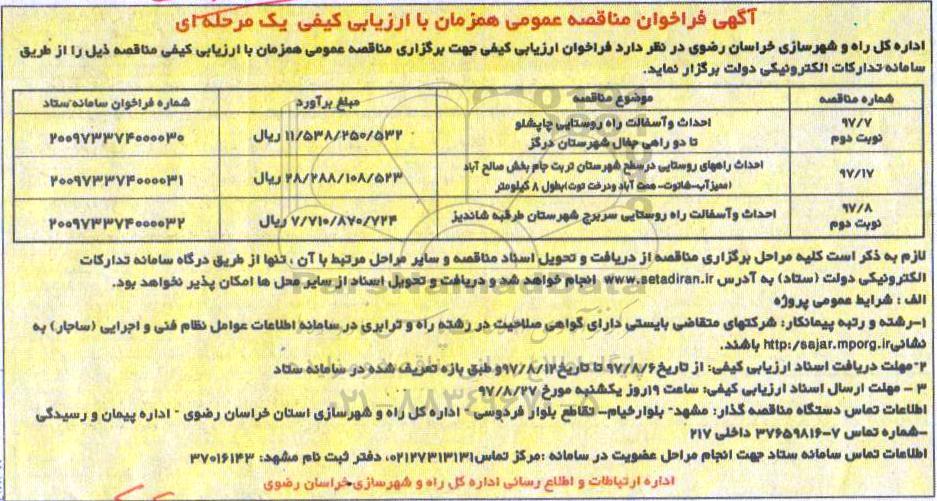 آگهی فراخوان مناقصه عمومی همزمان با ارزیابی کیفی یک مرحله ای
اداره کل راه و شهرسازی خراسان رضوی در نظر دارد فراخوان ارزیابی کیفی جهت برگزاری مناقصه عمومی همزمان با ارزیابی کیفی مناقصه ذیل را از طریق
سامانه تدارکات الکترونیکی دولت برگزار نماید.
شماره مناقصه موضوع مناقصه مبلغ برآورد شماره فراخوان سامانه ستاد
۹۷/۷ نوبت دوم احداث وآسفالت راه روستایی چاپشلو تا دو راهی جغال شهرستان درگز ۱۱/۵۳۸/۲۵۰/۵۳۲ ریال ۲۰۰۹۷۳۳۷۴۰۰۰۰۳۰
۹۷/۱۷ احداث راههای روستایی درسطح شهرستان تربت جام بخش صالح آباد (ممیزآب-شاتوت- همت آباد ودرخت توت)بطول ۸ کیلومتر ۲۸/۲۸۸/۱۰۸/۵۲۳ ریال ۲۰۰۹۷۳۳۷۴۰۰۰۰۳۱
۹۷/۸ نوبت دوم احداث وآسفالت راه روستایی سربرج شهرستان طرقبه شاندیز ۷/۷۱۰/۸۷۰/۷۲۴ ریال ۲۰۰۹۷۳۳۷۴۰۰۰۰۳۲
لازم به ذکر است کلیه مراحل برگزاری مناقصه از دریافت و تحویل اسناد مناقصه و سایر مراحل مرتبط با آن ، تنها از طریق درگاه سامانه تدارکات
الکترونیکی دولت (ستاد) به آدرس www.setadiran.ir انجام خواهد شد و دریافت و تحویل اسناد از سایر محل ها امکان پذیر نخواهد بود.
الف : شرایط عمومی پروژه
۱-رشته و رتبه پیمانکار: شرکتهای متقاضی بایستی دارای گواهی صلاحیت در رشته راه و ترابری در سامانه اطلاعات عوامل نظام فنی و اجرایی (ساجار) به
نشانی http:/sajar.mporg.ir باشند.
۲-مهلت دریافت اسناد ارزیابی کیفی: از تاریخ ۹۷/۸/۶ تا تاریخ ۹۷/۸/۱۲ و طبق بازه تعریف شده در سامانه ستاد
۳ - مهلت ارسال اسناد ارزیابی کیفی: ساعت ۱۹ روز یکشنبه مورخ ۹۷/۸/۲۷
اطلاعات تماس دستگاه مناقصه گذار: مشهد- بلوارخیام- تقاطع بلوار فردوسی - اداره کل راه و شهرسازی استان خراسان رضوی - اداره پیمان و رسیدگی
-شماره تماس ۷-۳۷۶۵۹۸۱۶ داخلی ۲۱۷
اطلاعات تماس سامانه ستاد جهت انجام مراحل عضویت در سامانه :مرکز تماس ۰۲۱۲۷۳۱۳۱۳۱، دفتر ثبت نام مشهد: ۳۷۰۱۶۱۴۳
اداره ارتباطات و اطلاع رسانی اداره کل راه و شهرسازی خراسان رضوی